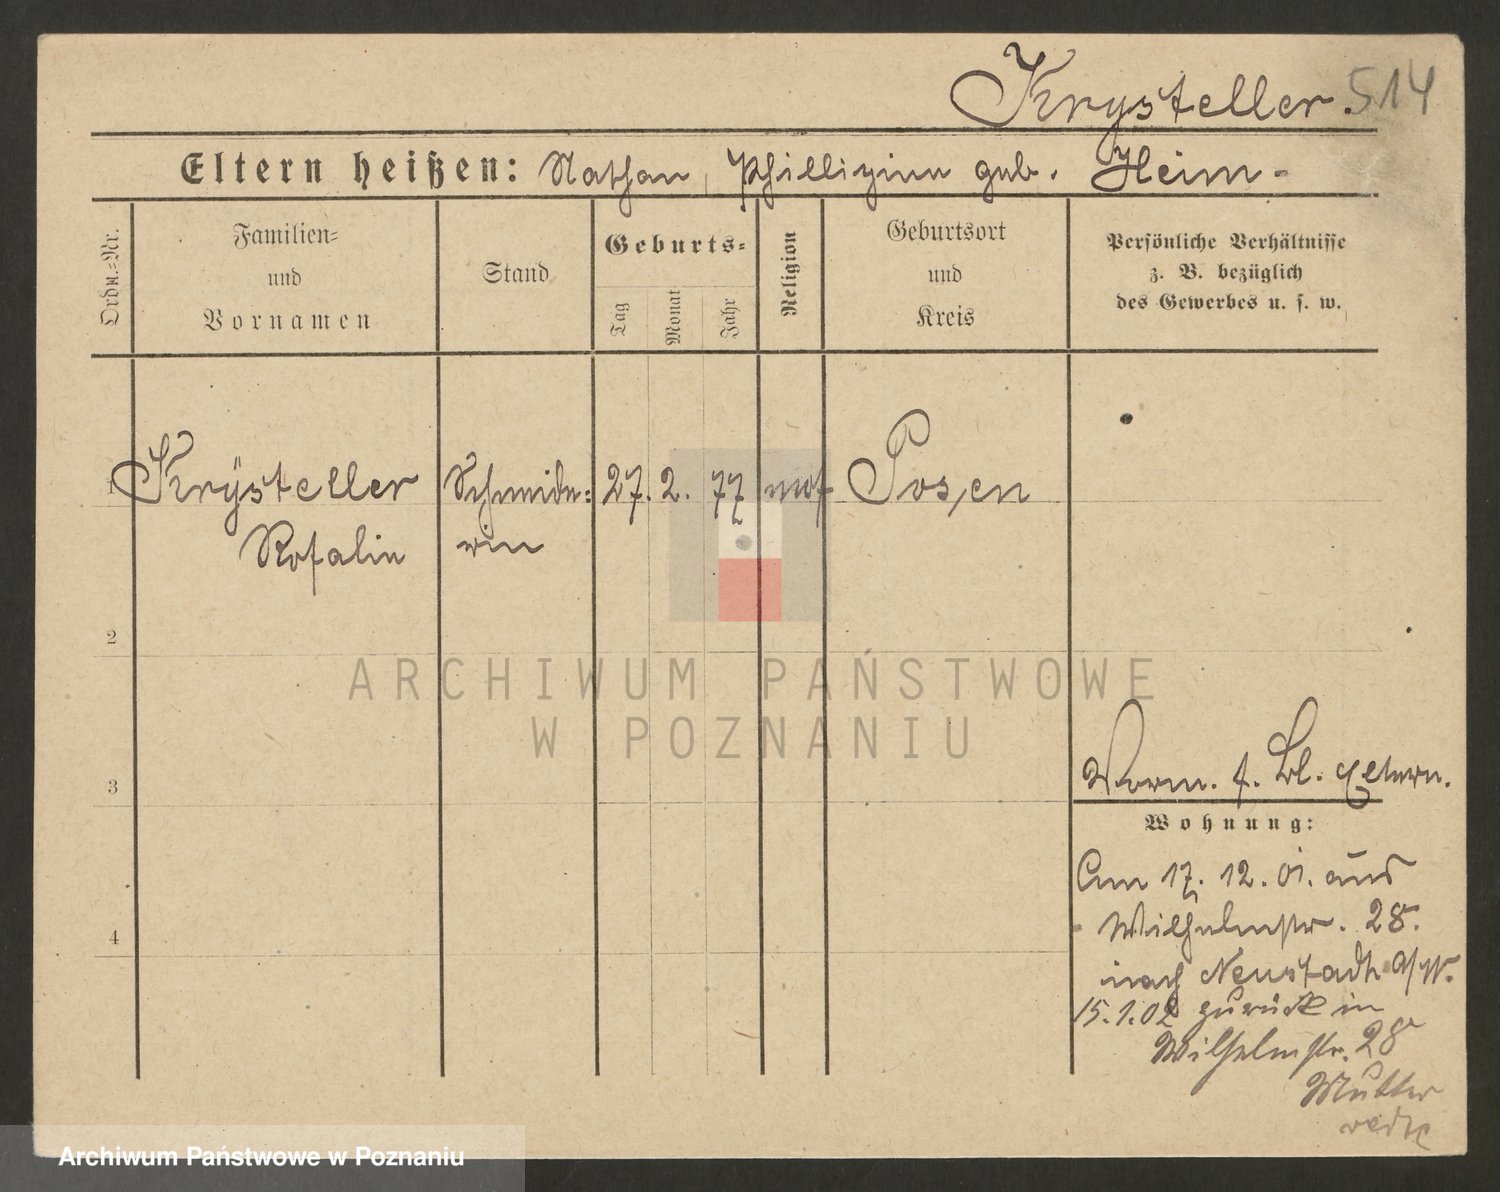 Krysteller. 514
Eltern heißen: Nathan, Phillippine geb. Heim-
Ordn.-Nr.
Familien-
und
Vornamen
Stand
Geburts-
Tag
Monat
Jahr
Religion
Geburtsort
und
Kreis
Persönliche Verhältnisse
z. B. bezüglich
des Gewerbes u. s. w.
1 Krysteller Schneide- 27. 2. 77 mos Posen
Rosalie rin
2
3
4
Vorm. f. Bl. Eltern.
Wohnung:
Am 17. 12. 01. aus
Wilhelmstr. 28.
nach Neustadt a/W.
15. 1. 02 zurück in
Wilhelmstr. 28
Mutter
ARCHIWUM PAŃSTWOWE
W POZNANIU
Archiwum Państwowe w Poznaniu